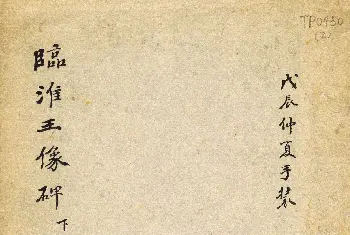 TP0430
(2)
戊辰仲夏手装
臨淮王像碑
下